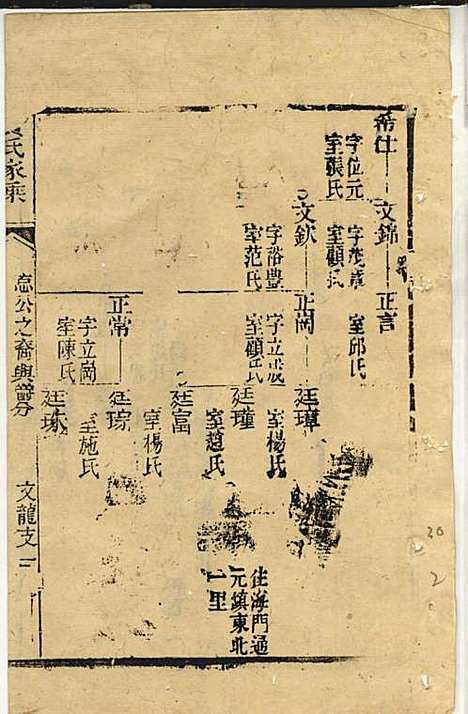 希仕
字位元
室張氏
文錦
字茂成
室顧氏
正言
室邱氏
文欽
字裕豐
室范氏
正岡
字立成
室顧氏
廷璋
室楊氏
住海門通
元鎮東北
一里
廷瑾
室趙氏
廷富
正常
字立崗
室陳氏
廷琮
室楊氏
室施氏
廷琢
氏家乘
公之裔興爵分
文龍支
30
2